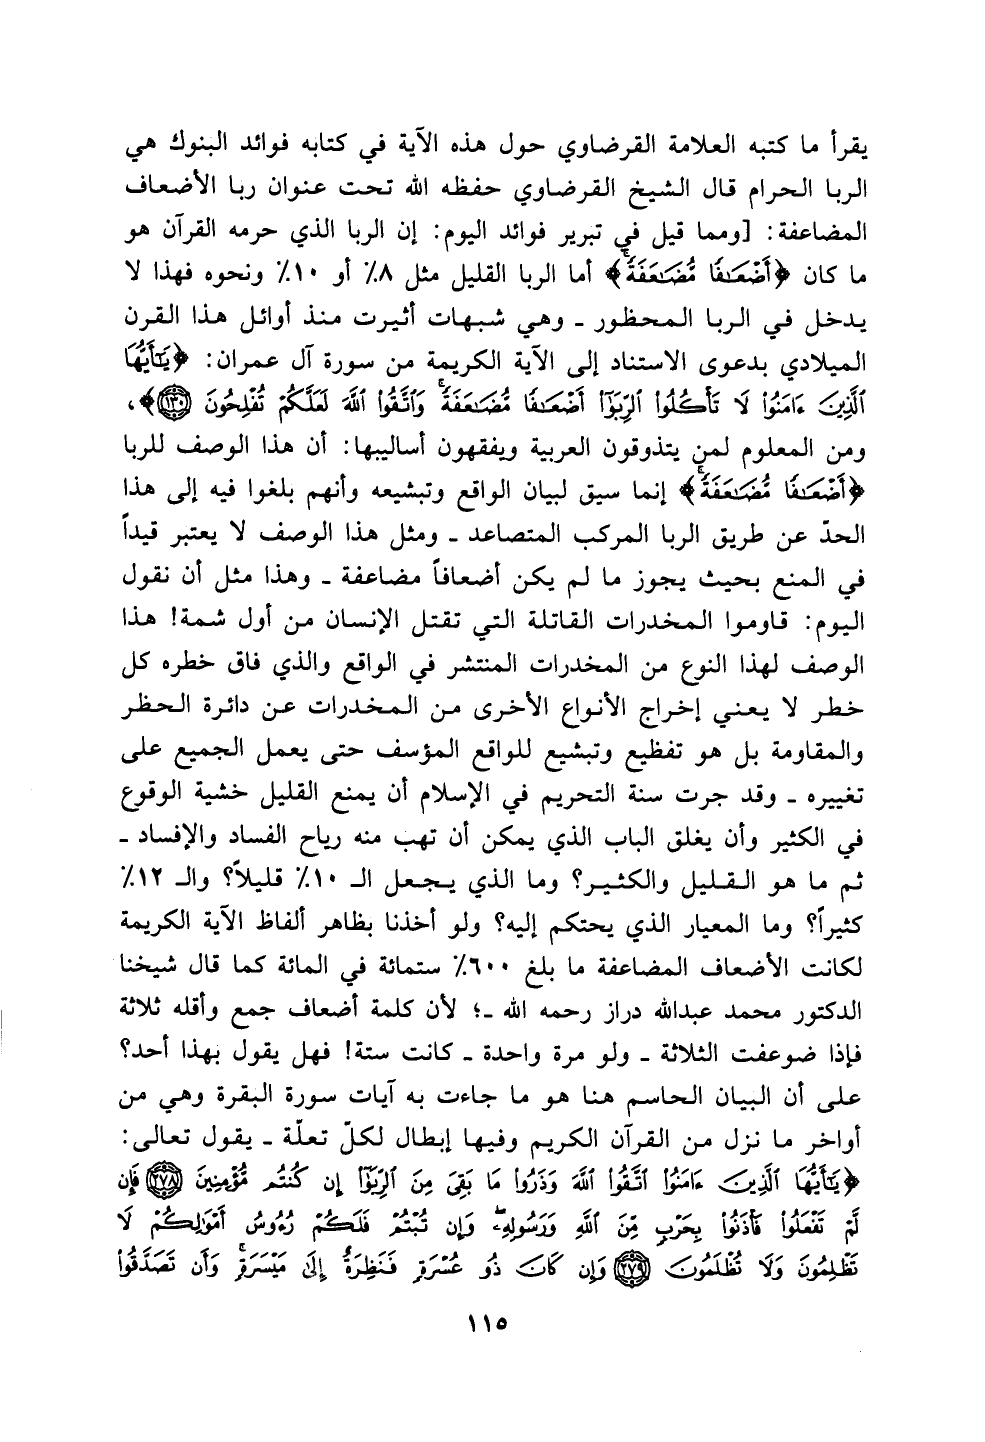 يقرأ ما كتبه العلامة القرضاوي حول هذه الآية في كتابه فوائد البنوك هي
الربا الحرام قال الشيخ القرضاوي حفظه الله تحت عنوان ربا الأضعاف
المضاعفة: [ومما قيل في تبرير فوائد اليوم: إن الربا الذي حرمه القرآن هو
ما كان ﴿أَضْعَـٰفًا مُّضَـٰعَفَةً﴾ أما الربا القليل مثل ٨٪ أو ١٠٪ ونحوه فهذا لا
يدخل في الربا المحظور ـ وهي شبهات أثيرت منذ أوائل هذا القرن
الميلادي بدعوى الاستناد إلى الآية الكريمة من سورة آل عمران: ﴿يَـٰٓأَيُّهَا
ٱلَّذِينَ ءَامَنُوا۟ لَا تَأْكُلُوا۟ ٱلرِّبَوٰٓا۟ أَضْعَـٰفًا مُّضَـٰعَفَةً ۖ وَٱتَّقُوا۟ ٱللَّهَ لَعَلَّكُمْ تُفْلِحُونَ ١٣٠﴾،
ومن المعلوم لمن يتذوقون العربية ويفقهون أساليبها: أن هذا الوصف للربا
﴿أَضْعَـٰفًا مُّضَـٰعَفَةً﴾ إنما سيق لبيان الواقع وتبشيعه وأنهم بلغوا فيه إلى هذا
الحدّ عن طريق الربا المركب المتصاعد ـ ومثل هذا الوصف لا يعتبر قيداً
في المنع بحيث يجوز ما لم يكن أضعافاً مضاعفة ـ وهذا مثل أن نقول
اليوم: قاوموا المخدرات القاتلة التي تقتل الإنسان من أول شمة! هذا
الوصف لهذا النوع من المخدرات المنتشر في الواقع والذي فاق خطره كل
خطر لا يعني إخراج الأنواع الأخرى من المخدرات عن دائرة الحظر
والمقاومة بل هو تفظيع وتبشيع للواقع المؤسف حتى يعمل الجميع على
تغييره ـ وقد جرت سنة التحريم في الإسلام أن يمنع القليل خشية الوقوع
في الكثير وأن يغلق الباب الذي يمكن أن تهب منه رياح الفساد والإفساد ـ
ثم ما هو القليل والكثير؟ وما الذي يجعل الـ ١٠٪ قليلاً؟ والـ ١٢٪
كثيراً؟ وما المعيار الذي يحتكم إليه؟ ولو أخذنا بظاهر ألفاظ الآية الكريمة
لكانت الأضعاف المضاعفة ما بلغ ٦٠٠٪ ستمائة في المائة كما قال شيخنا
الدكتور محمد عبدالله دراز رحمه الله ـ؛ لأن كلمة أضعاف جمع وأقله ثلاثة
فإذا ضوعفت الثلاثة ـ ولو مرة واحدة ـ كانت ستة! فهل يقول بهذا أحد؟
على أن البيان الحاسم هنا هو ما جاءت به آيات سورة البقرة وهي من
أواخر ما نزل من القرآن الكريم وفيها إبطال لكلّ تعلّة ـ يقول تعالى:
﴿يَـٰٓأَيُّهَا ٱلَّذِينَ ءَامَنُوا۟ ٱتَّقُوا۟ ٱللَّهَ وَذَرُوا۟ مَا بَقِىَ مِنَ ٱلرِّبَوٰٓا۟ إِن كُنتُم مُّؤْمِنِينَ ٢٧٨ فَإِن
لَّمْ تَفْعَلُوا۟ فَأْذَنُوا۟ بِحَرْبٍ مِّنَ ٱللَّهِ وَرَسُولِهِۦ ۖ وَإِن تُبْتُمْ فَلَكُمْ رُءُوسُ أَمْوَٰلِكُمْ لَا
تَظْلِمُونَ وَلَا تُظْلَمُونَ ٢٧٩ وَإِن كَانَ ذُو عُسْرَةٍ فَنَظِرَةٌ إِلَىٰ مَيْسَرَةٍ ۚ وَأَن تَصَدَّقُوا۟
١١٥